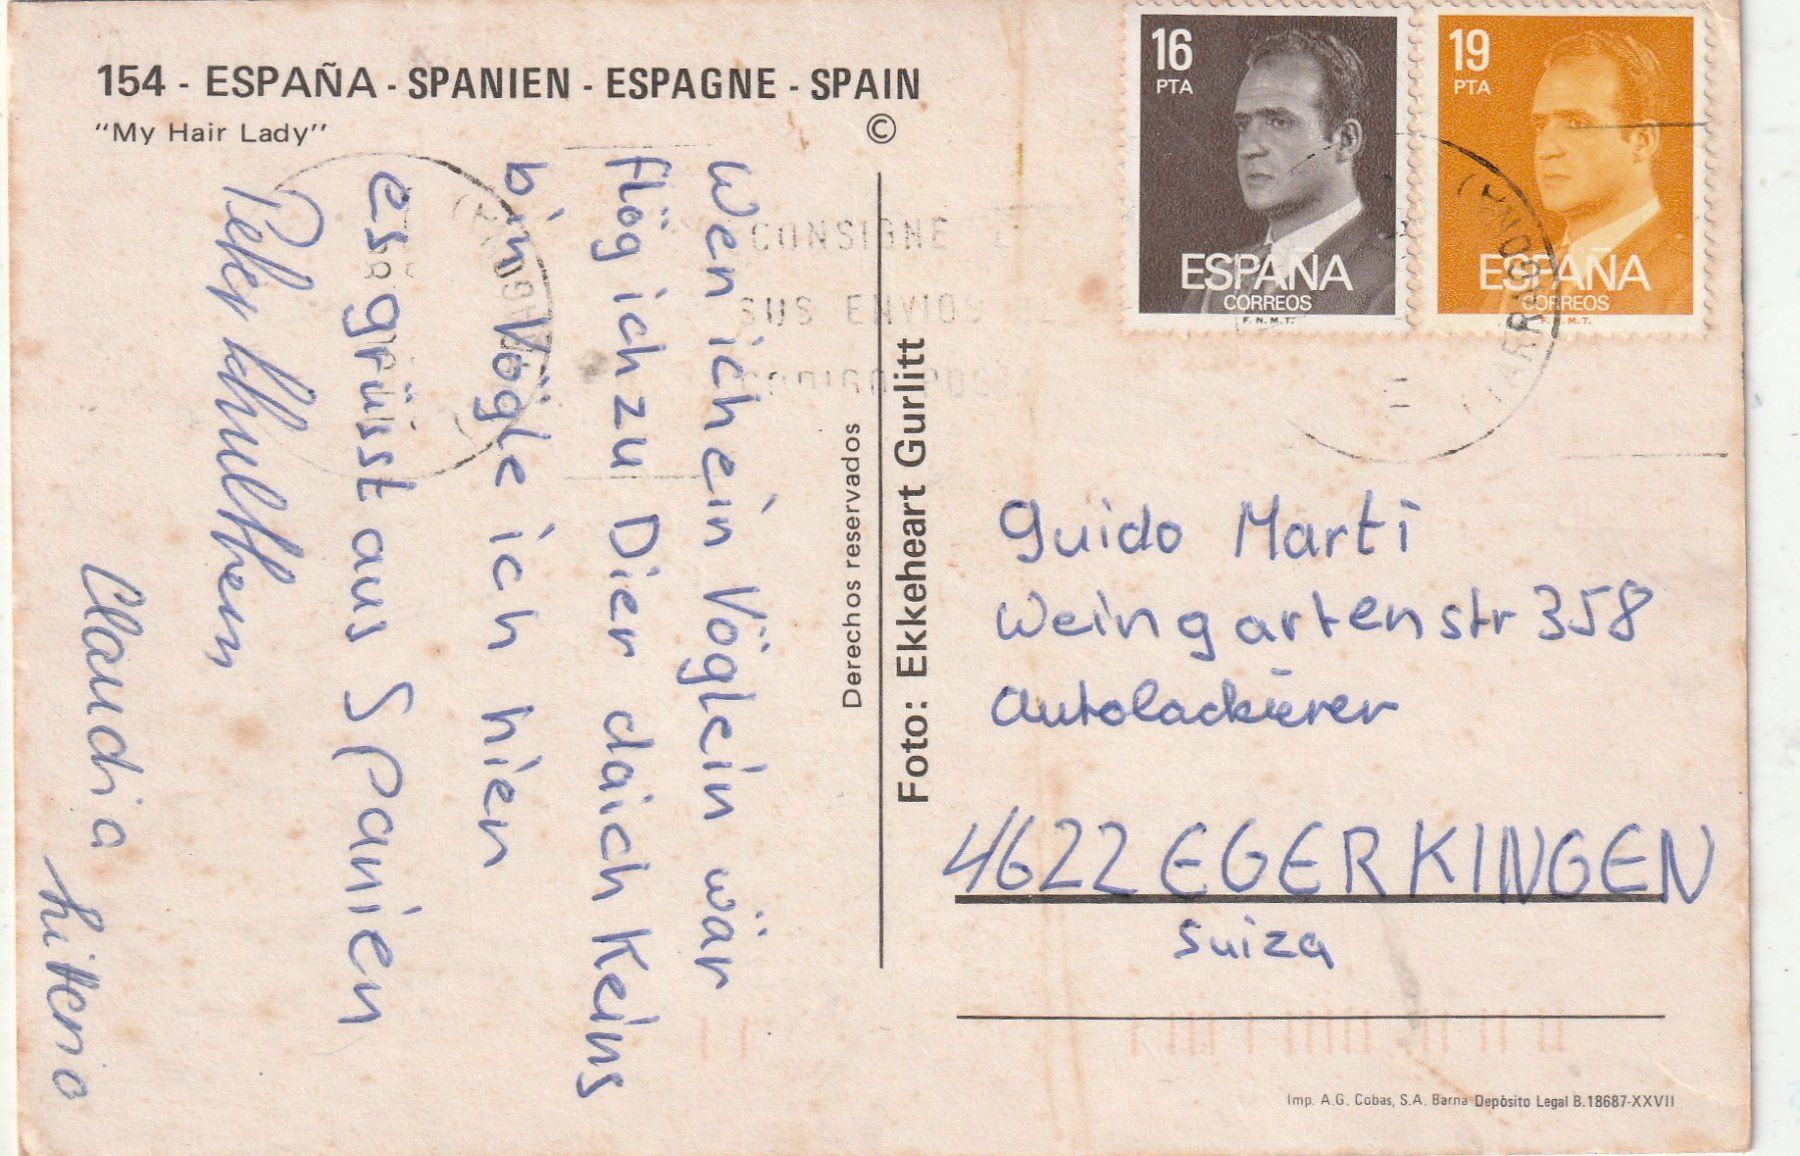 154 - ESPAÑA - SPANIEN - ESPAGNE - SPAIN
"My Hair Lady"
©
Wen ich ein Vöglein wär
flög ich zu Dier daich Keins
bin Vögle ich hier
es grüsst aus SPanien
Peter
Claudia
Derechos reservados
Foto: Ekkeheart Gurlitt
16
PTA
ESPAÑA
CORREOS
F.N.M.T.
19
PTA
ESPAÑA
CORREOS
F.N.M.T.
CONSIGNE
SUS ENVIOS
CODIGO POSTAL
Guido Marti
Weingartenstr 358
Autolackierer
4622 EGERKINGEN
Suiza
Imp. A.G. Cobas, S.A. Barna Depósito Legal B.18687-XXVII